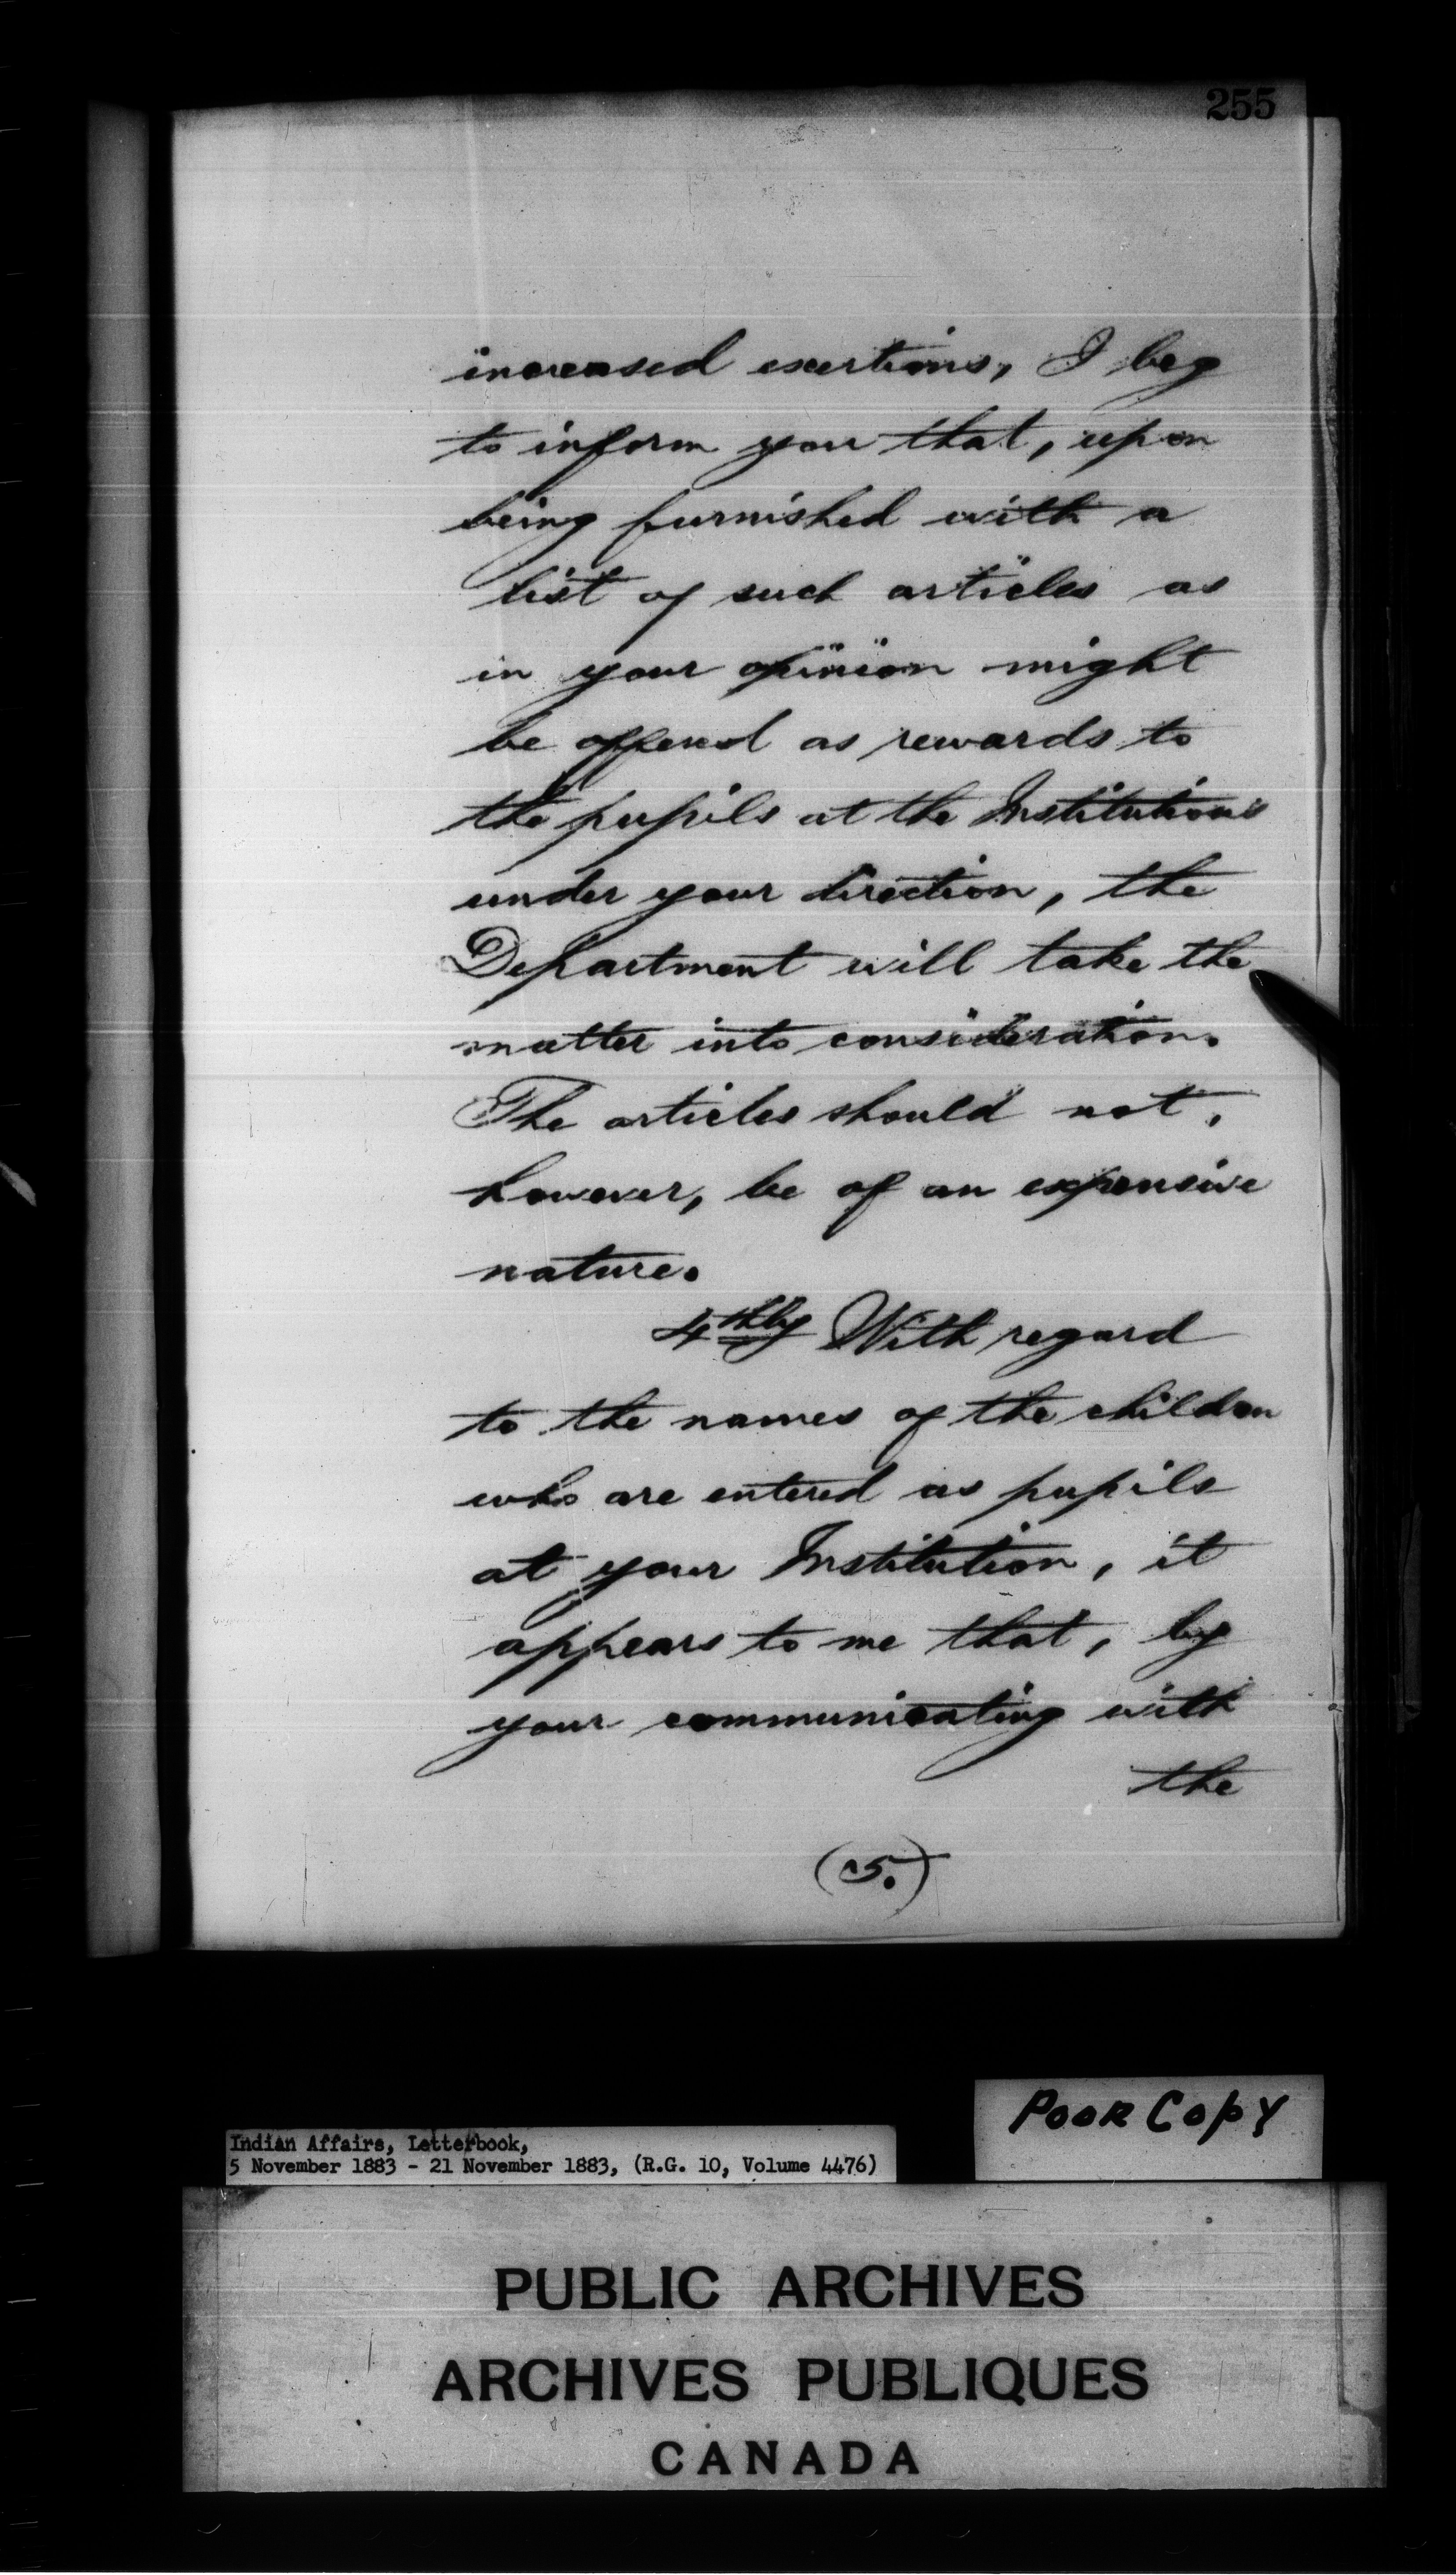 255
increased exertions, I beg
to inform you that, upon
being furnished with a
list of such articles as
in your opinion might
be offered as rewards to
the pupils at the Institutions
under your direction, the
Department will take the
matter into consideration.
The articles should not,
however, be of an expensive
nature.
4thly With regard
to the names of the children
who are entered as pupils
at your Institution, it
appears to me that, by
your communicating with
the
(5.)
POOR COPY
Indian Affairs, Letterbook,
5 November 1883 - 21 November 1883, (R.G. 10, Volume 4476)
PUBLIC ARCHIVES
ARCHIVES PUBLIQUES
CANADA